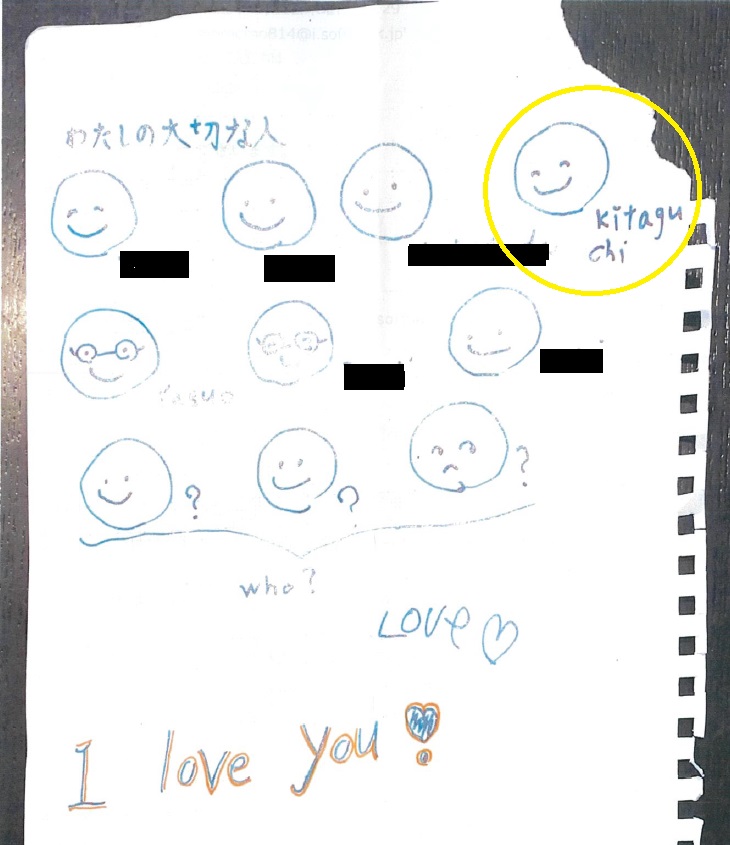 わたしの大切な人
kitagu
chi
?
?
?
who?
LOVE
I love you